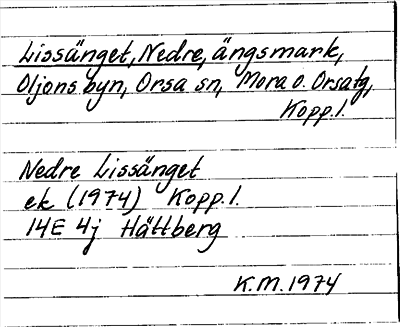 Lissänget, Nedre, ängsmark,
Oljons byn, Orsa sn, Mora o. Orsa tg,
Kopp. l.
Nedre Lissänget
ek (1974) Kopp. l.
14E 4j Hättberg
K.M. 1974